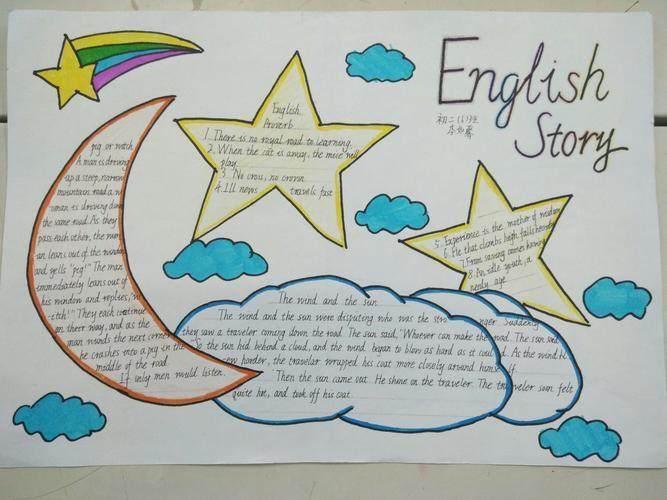 English
Story
初二(6)班
English
Proverb
1. There is no royal road to learning.
2. When the cat is away, the mice will
play.
3. No cross, no crown
4. Ill news travels fast
5. Experience is the mother of wisdom
6. He that climbs high falls heavily
7. From saving comes having
8. An idle youth, a
needy age
pig or witch
A man is driving
up a steep, narrow
mountain road. a w
oman is driving down
the same road. As they
pass each other, the wom
an leans out of the window
and yells "pig!" The man
immediately leans out of
his window and replies, "w
itch!" They each continue
on their way, and as the
man rounds the next corner
he crashes into a pig in the
middle of the road.
If only men would listen.
The wind and the sun
The wind and the sun were disputing who was the stronger. Suddenly
they saw a traveler coming down the road. The sun said, "Whoever can make the road. The sun
So the sun hid behind a cloud, and the wind began to blow as hard as it could. As the wind bl
ew harder, the traveler wrapped his coat more closely around himself.
Then the sun came out. He shine on the traveler. The traveler soon felt
quite hot, and took off his coat.